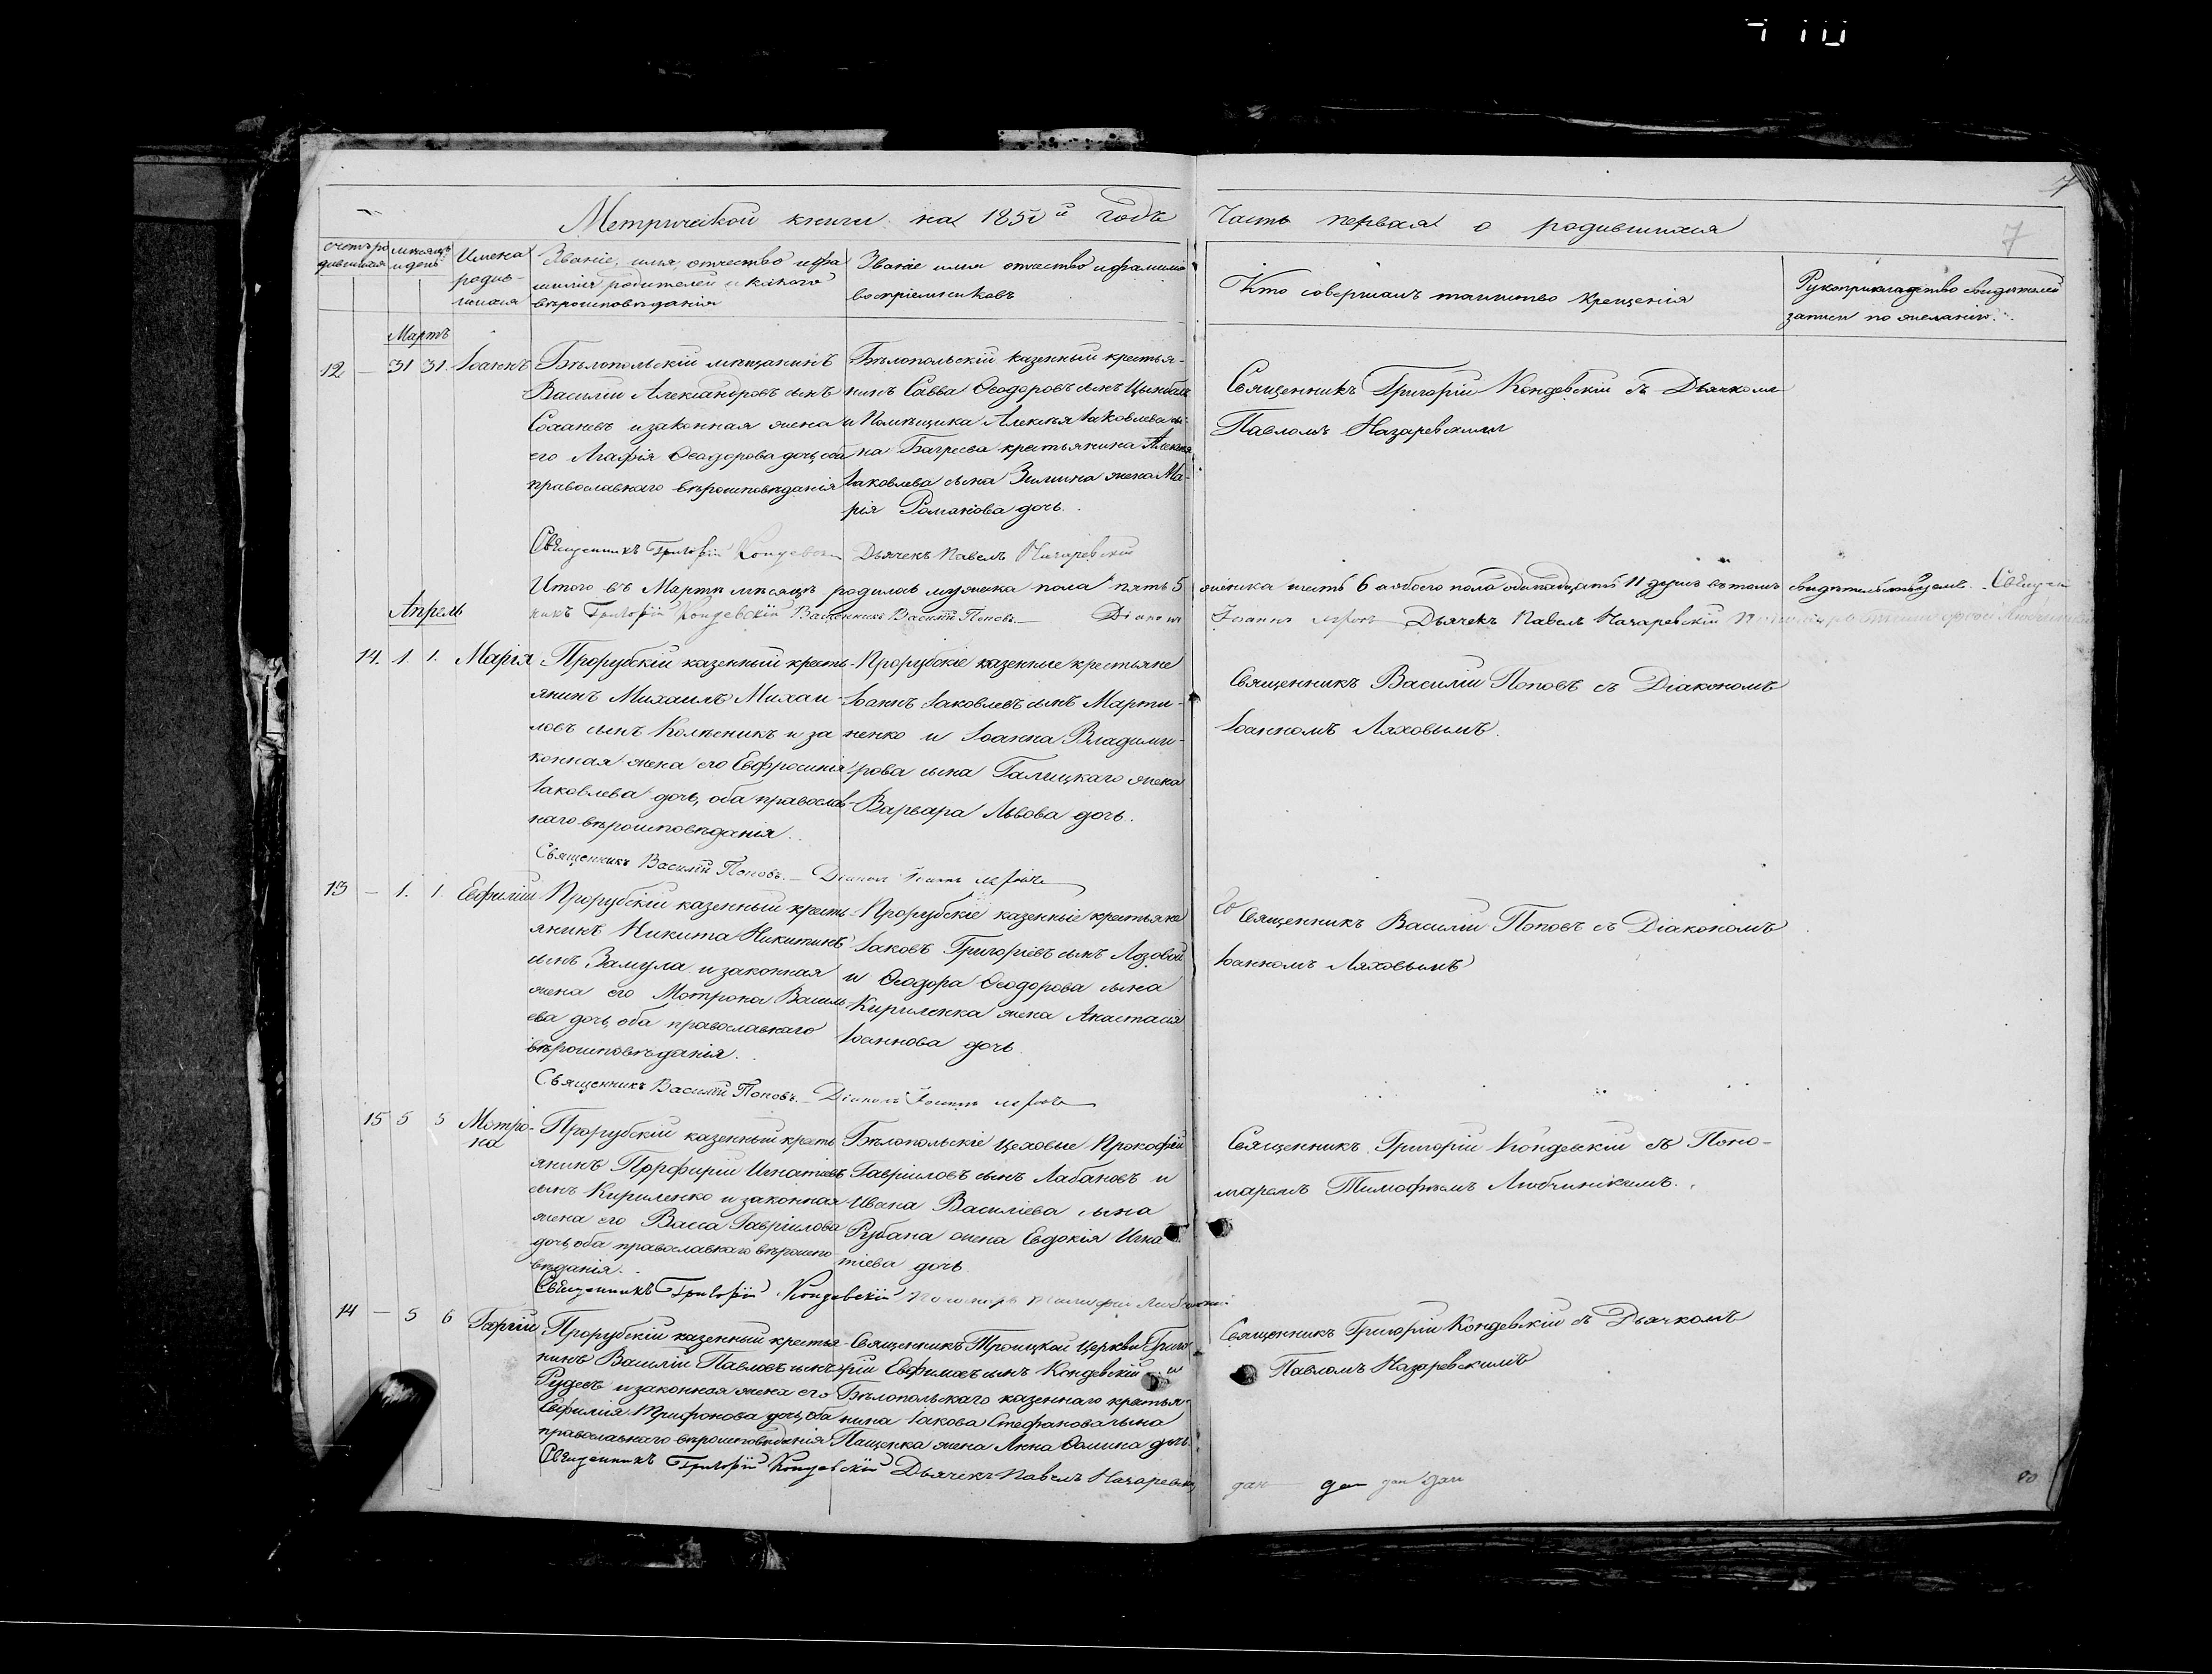 7
7
Метрической книги на 1850й годъ Часть первая о родившихся
счетъ ро
дившихся
мѣсяцъ
и день
Имена
родив-
шихся
Званіе, имя, отчество и фа
милія родителей и какого
вѣроисповѣданія
Званіе имя отчество и фамилія
воспріемниковъ
Кто совершалъ таинство крещенія
Рукоприкладство свидѣтелей
записи по желанію.
Мартъ
12 — 31 31. Іоаннъ
Бѣлопольскій мѣщанинъ
Василій Александровъ сынъ
и законная жена
его Агафія Ѳеодорова дочь, оба
православнаго вѣроисповѣданія
Бѣлопольскій казенный крестья-
нинъ Савва Ѳеодоровъ сынъ Цымбалъ
и Помѣщика Алексѣя Іаковлева сы-
на Багреева крестьянина Алексѣя
Іаковлева сына Зимина жена Ма-
рія Романова дочь.
Священникъ Григорій Кондевскій съ Дьячкомъ
Павломъ Назаревскимъ
Священникъ Григорій Кондевскій Дьячекъ Павелъ Назаревскій
Итого въ Мартѣ мѣсяцѣ родилось мужеска пола пять 5 женска шесть 6 а обоего пола одинадцать 11 душъ въ томъ свидѣтельствуемъ. Священ
никъ Григорій Кондевскій Священникъ Василій Поповъ. — Діаконъ Іоаннъ Ляховъ Дьячекъ Павелъ Назаревскій Пономарь Тимофей Любчинскій
Апрель
14. 1. 1. Марія
Прорубскій казенный кресть-
янинъ Михаилъ Михаи-
ловъ сынъ Колѣсникъ и за
конная жена его Евфросинія
Іаковлева дочь, оба православ-
наго вѣроисповѣданія.
Прорубскіе казенные крестьяне
Іоаннъ Іаковлевъ сынъ Марти-
ненко и Іоанна Владими-
рова сына Галицкаго жена
Варвара Львова дочь.
Священникъ Василій Поповъ съ Діакономъ
Іоанномъ Ляховымъ.
Священникъ Василій Поповъ. — Діаконъ Іоаннъ Ляховъ
13 — 1. 1. Евфимій
Прорубскій казенный кресть-
янинъ Никита Никитинъ
сынъ Замула и законная
жена его Мотрона Василь-
ева дочь, оба православнаго
вѣроисповѣданія.
Прорубскіе казенные крестьяне
Іаковъ Григоріевъ сынъ Лозовой
и Ѳеодора Ѳеодорова сына
Кириленка жена Анастасія
Іоаннова дочь.
Священникъ Василій Поповъ съ Діакономъ
Іоанномъ Ляховымъ
Священникъ Василій Поповъ. — Діаконъ Іоаннъ Ляховъ
15 5 5 Мотро-
на
Прорубскій казенный кресть
янинъ Порфирій Игнатіевъ
сынъ Кириленко и законная
жена его Васса Гавріилова
дочь, оба православнаго вѣроиспо-
вѣданія.
Бѣлопольскіе цеховые Прокофій
Гавріиловъ сынъ Лабановъ и
Ивана Василіева сына
Рубана жена Евдокія Игна
тіева дочь
Священникъ Григорій Кондевскій съ Поно-
маремъ Тимофѣемъ Любчинскимъ.
Священникъ Григорій Кондевскій Пономарь Тимофей Любчинскій
14 — 5 6 Георгій
Прорубскій казенный крестья
нинъ Василій Павловъ сынъ
Рудевъ и законная жена его
Евфимія Трифонова дочь, оба
православнаго вѣроисповѣданія
Священникъ Троицкой Церкви Григо
рій Евфиміевъ сынъ Кондевскій и
Бѣлопольскаго казеннаго крестья-
нина Іакова Стефанова сына
Пащенка жена Анна Ѳомина дочь.
Священникъ Григорій Кондевскій съ Дьячкомъ
Павломъ Назаревскимъ
Священникъ Григорій Кондевскій Дьячекъ Павелъ Назаревскій
дан дан дан дан